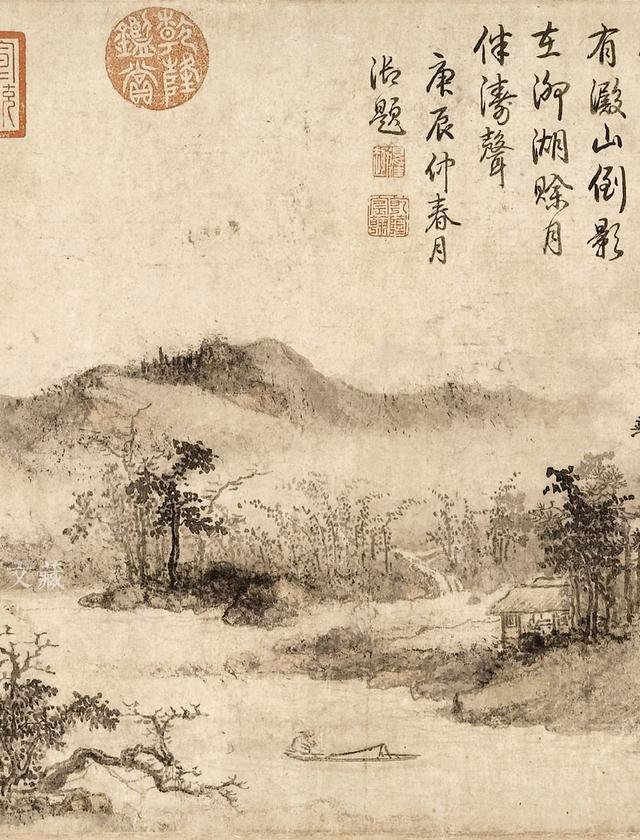 有澱山倒影
在泖湖賒月
伴濤聲
庚辰仲春月
御題
乾隆宸翰
乾隆鑑賞
文藏